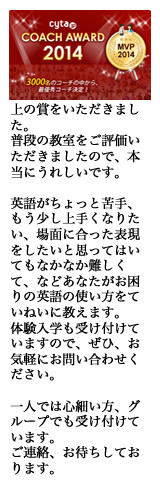 cyta.jp
COACH AWARD
2014
MVP
2014
3000名のコーチの中から、
最優秀コーチ決定!
上の賞をいただきまし
た。
普段の教室をご評価い
ただきましたので、本
当にうれしいです。
英語がちょっと苦手、
もう少し上手くなりた
い、場面に合った表現
をしたいと思ってはい
てもなかなか難しく
て、などあなたがお困
りの英語の使い方をて
いねいに教えます。
体験入学も受け付けて
いますので、ぜひ、お
気軽にお問い合わせく
ださい。
一人では心細い方、グ
ループでも受け付けて
います。
ご連絡、お待ちしてお
ります。